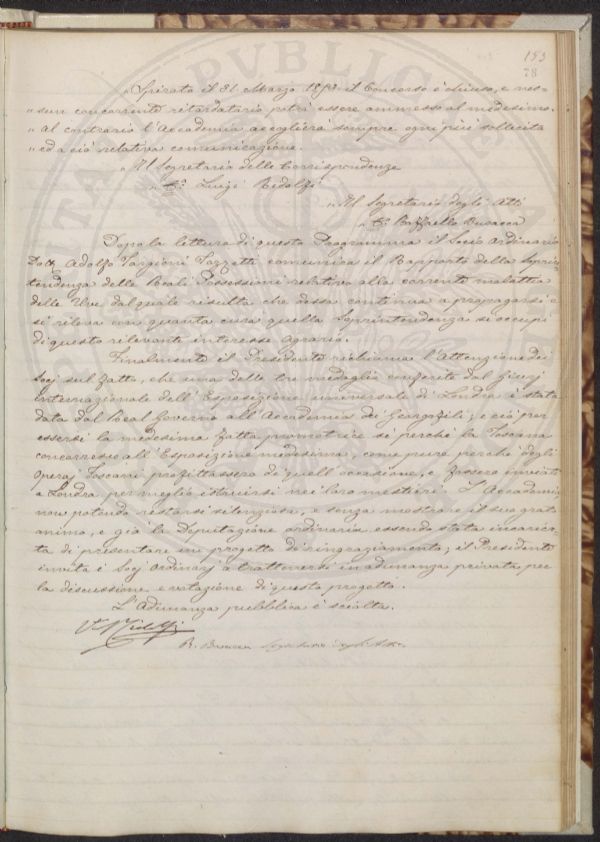 153
78
„ Spirato il 31 Marzo 1853 il Concorso è chiuso, e nes=
„ sun concorrente ritardatario potrà essere ammesso al medesimo.
„ Al contrario l'Accademia accoglierà sempre ogni più sollecita
„ ed a ciò relativa comunicazione.
„ Il Segretario delle Corrispondenze
„ Co: Luigi Ridolfi
„ Il Segretario degli Atti
„ Raffaello Busacca
Dopo la lettura di questo Programma il Socio Ordinario
Dott. Adolfo Targioni Tozzetti comunica il Rapporto della Soprin=
tendenza delle Reali Possessioni relativo alla corrente malattia
delle Uve dal quale risulta che dessa continua a propagarsi e
si rileva con quanta cura quella Soprintendenza si occupi
di questo rilevante interesse agrario.
Finalmente il Presidente richiama l'Attenzione dei
Socj sul fatto, che una delle tre medaglie conferite dal Giurì
internazionale dell'Esposizione universale di Londra è stata
data dal Real Governo all'Accademia dei Georgofili; e ciò per
essersi la medesima fatta promotrice sì perchè la Toscana
concorresse all'Esposizione medesima, come pure perchè degli
Operaj Toscani profittassero di quell'occasione, e fossero inviati
a Londra per meglio istruirsi nei loro mestieri. L'Accademia
non potendo restarsi silenziosa, e senza mostrare il suo grato
animo, e già la Deputazione ordinaria essendo stata incarica=
ta di presentare un progetto di ringraziamento, il Presidente
invita i Socj Ordinarj a trattenersi in adunanza privata per
la discussione e votazione di questo progetto.
L'Adunanza pubblica è sciolta.
Ridolfi
R. Busacca Segretario degli Atti